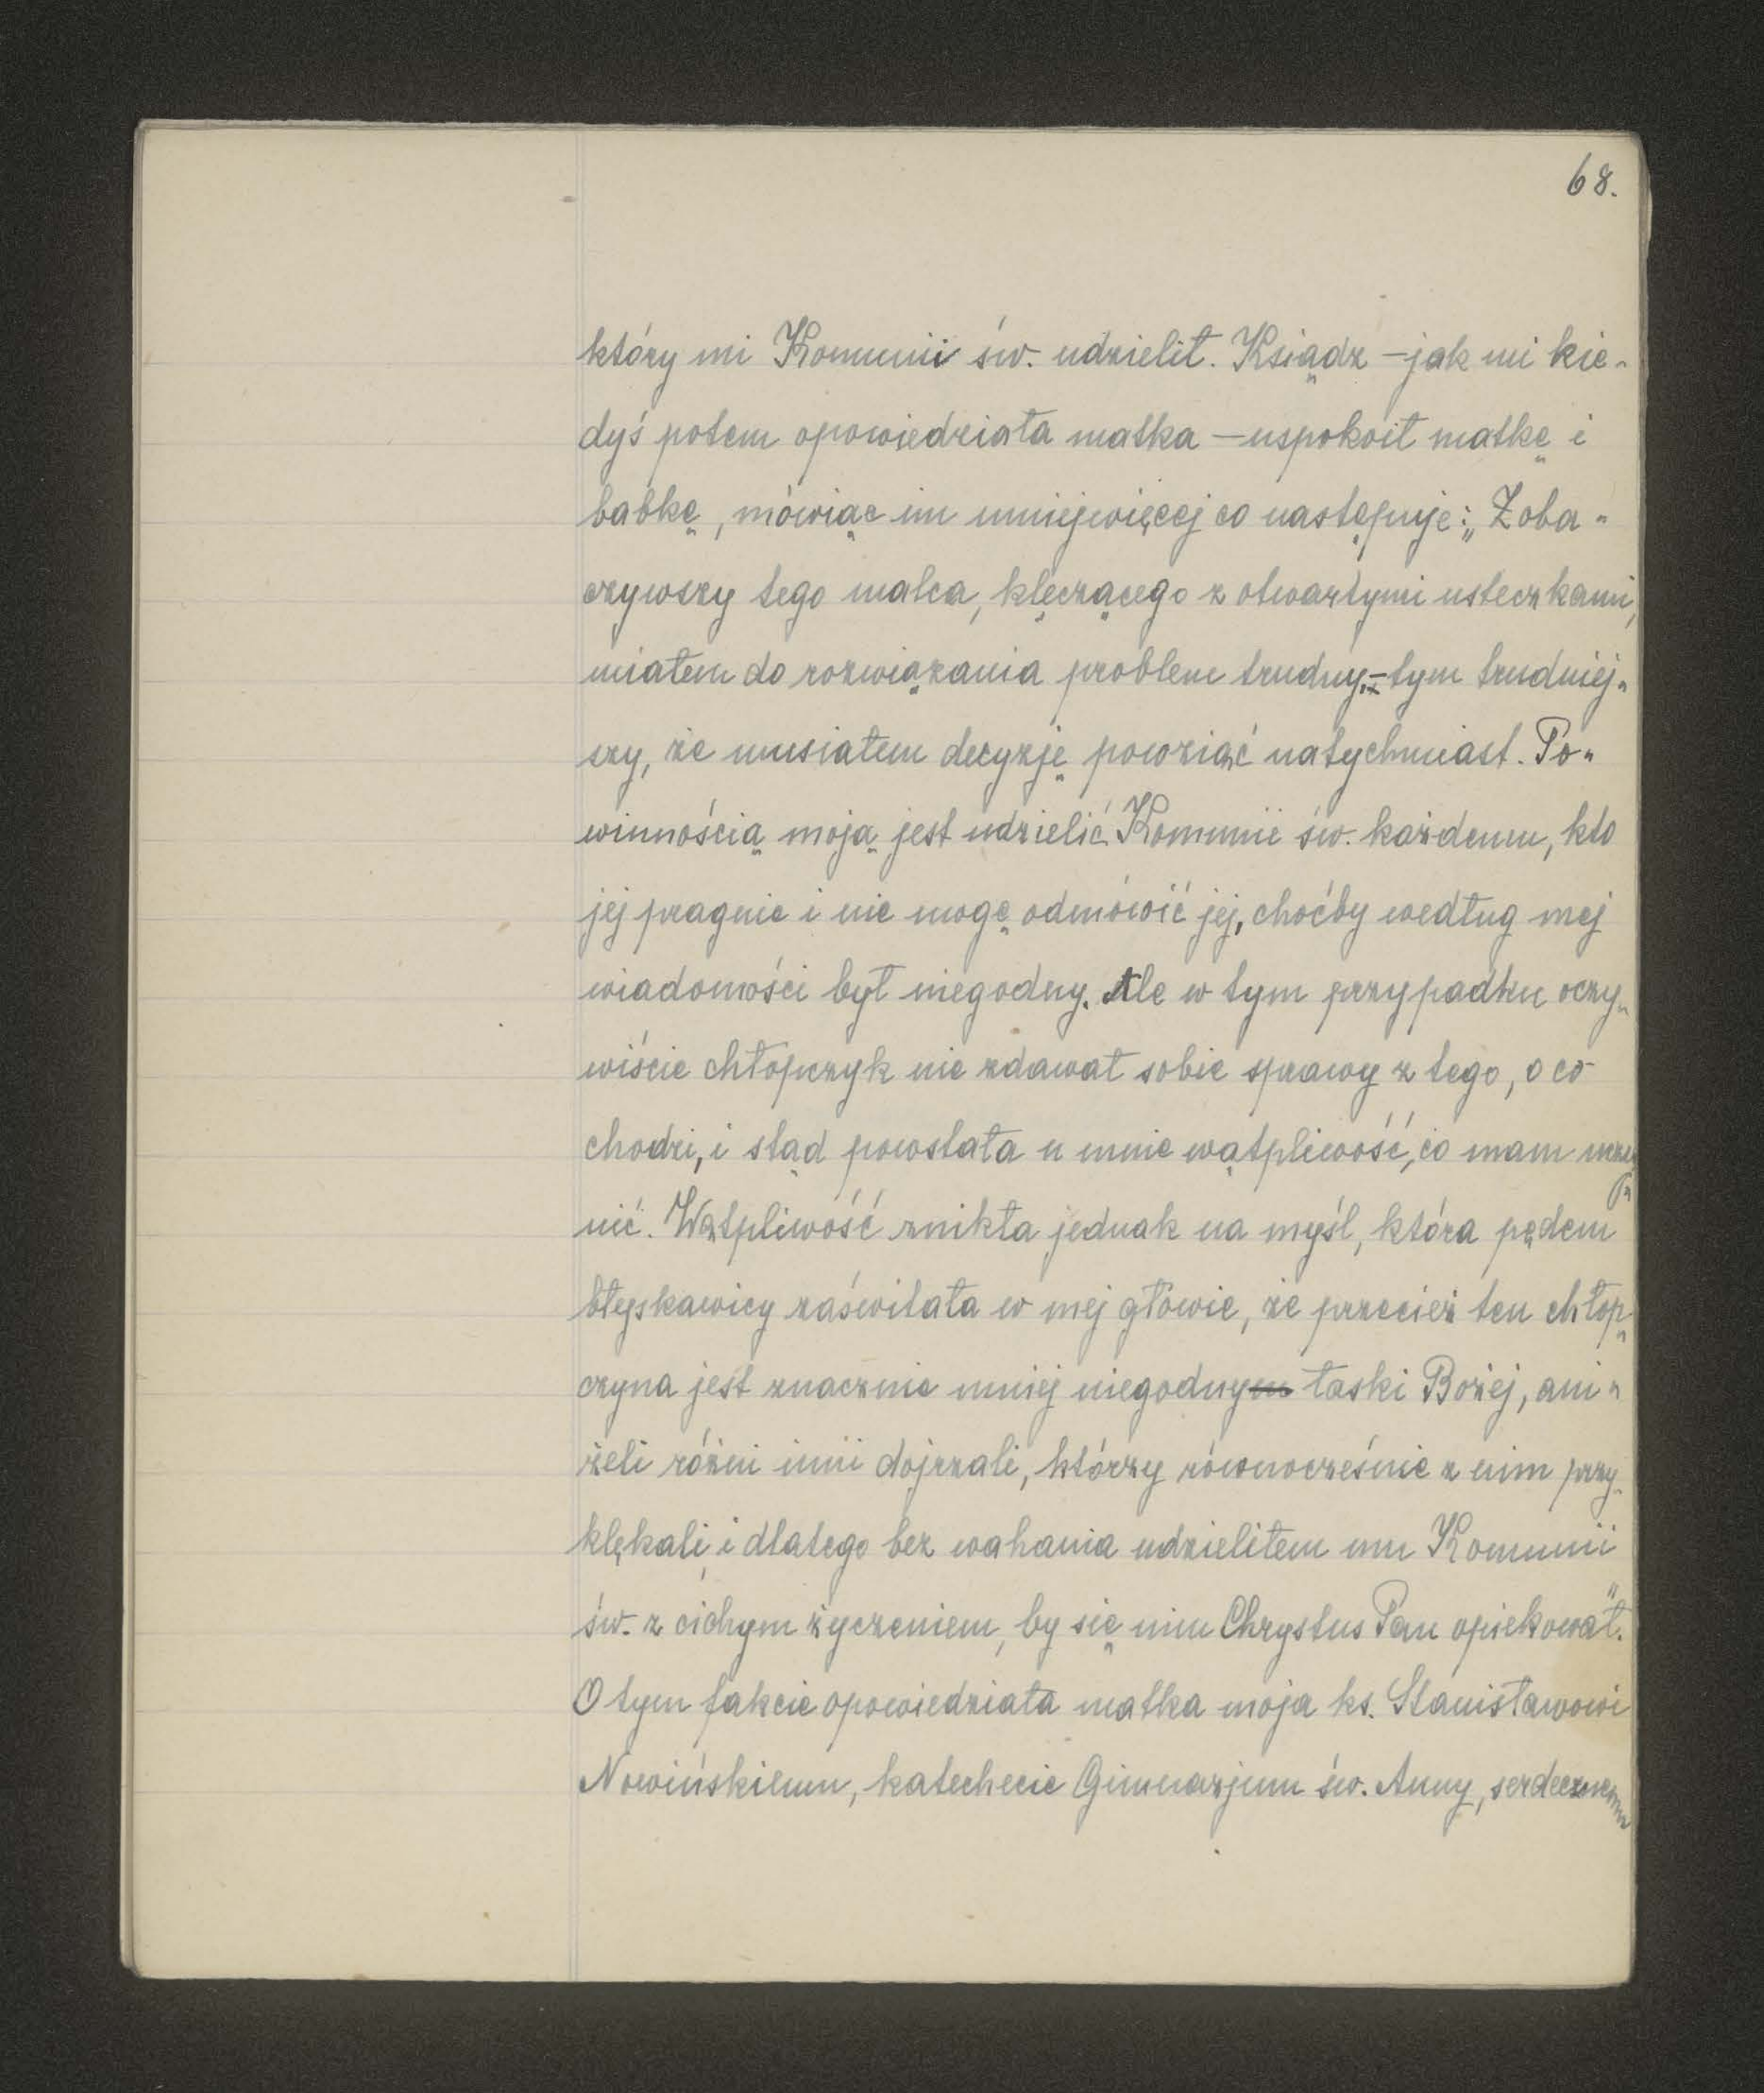 68.
który mi Komunii św. udzielił. Ksiądz — jak mi kie-
dyś potem opowiedziała matka — uspokoił matkę i
babkę, mówiąc im mniejwięcej co następuje: „Zoba-
czywszy tego malca, klęczącego z otwartymi usteczkami,
miałem do rozwiązania problem trudny, — tym trudniej-
szy, że musiałem decyzję powziąć natychmiast. Po-
winnością moją jest udzielić Komunii św. każdemu, kto
jej pragnie i nie mogę odmówić jej, choćby według mej
wiadomości był niegodny. Ale w tym przypadku oczy-
wiście chłopczyk nie zdawał sobie sprawy z tego, o co
chodzi, i stąd powstała u mnie wątpliwość, co mam uczy-
nić. Wątpliwość znikła jednak na myśl, która pędem
błyskawicy zaświtała w mej głowie, że przecież ten chłop-
czyna jest znacznie mniej niegodny łaski Bożej, ani-
żeli różni inni dojrzali, którzy równocześnie z nim przy-
klękali, i dlatego bez wahania udzieliłem mu Komunii
św. z cichym życzeniem, by się nim Chrystus Pan opiekował."
O tym fakcie opowiedziała matka moja ks. Stanisławowi
Nowińskiemu, katechecie Gimnazjum św. Anny, serdecznemu